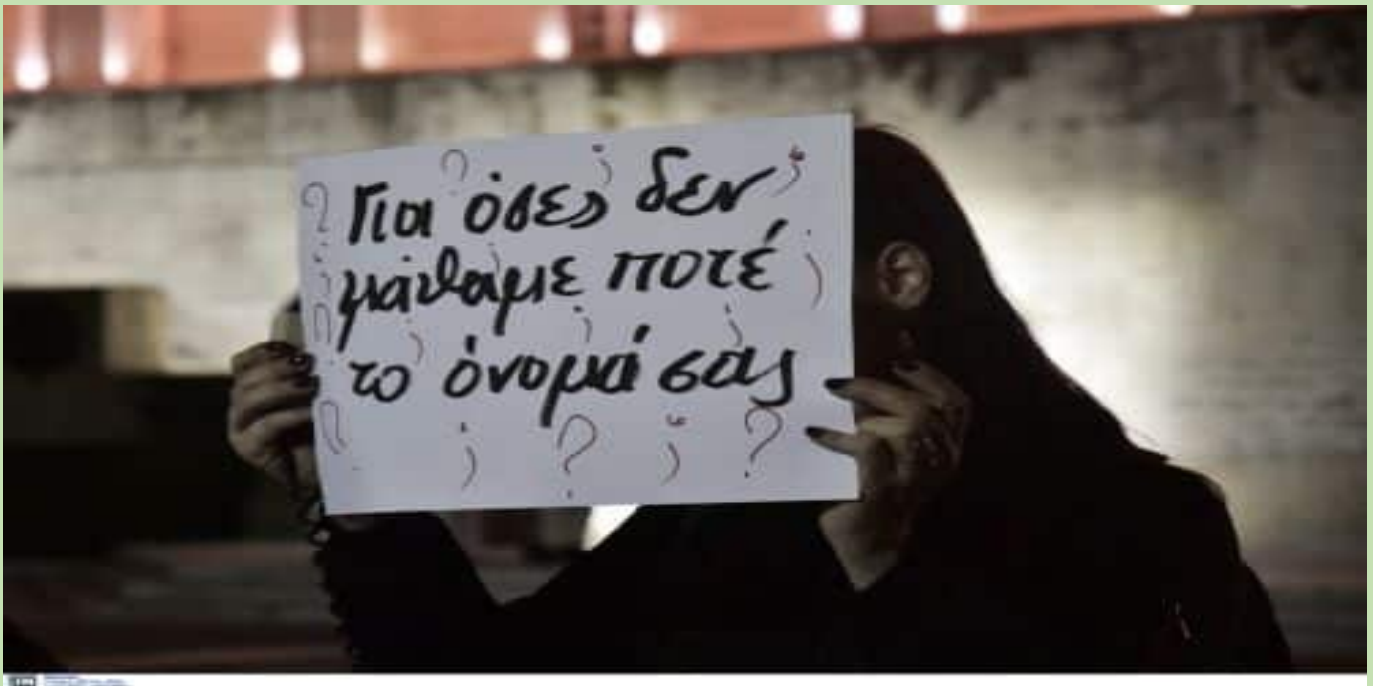 Για όσες δεν
μάθαμε ποτέ
το όνομά σας